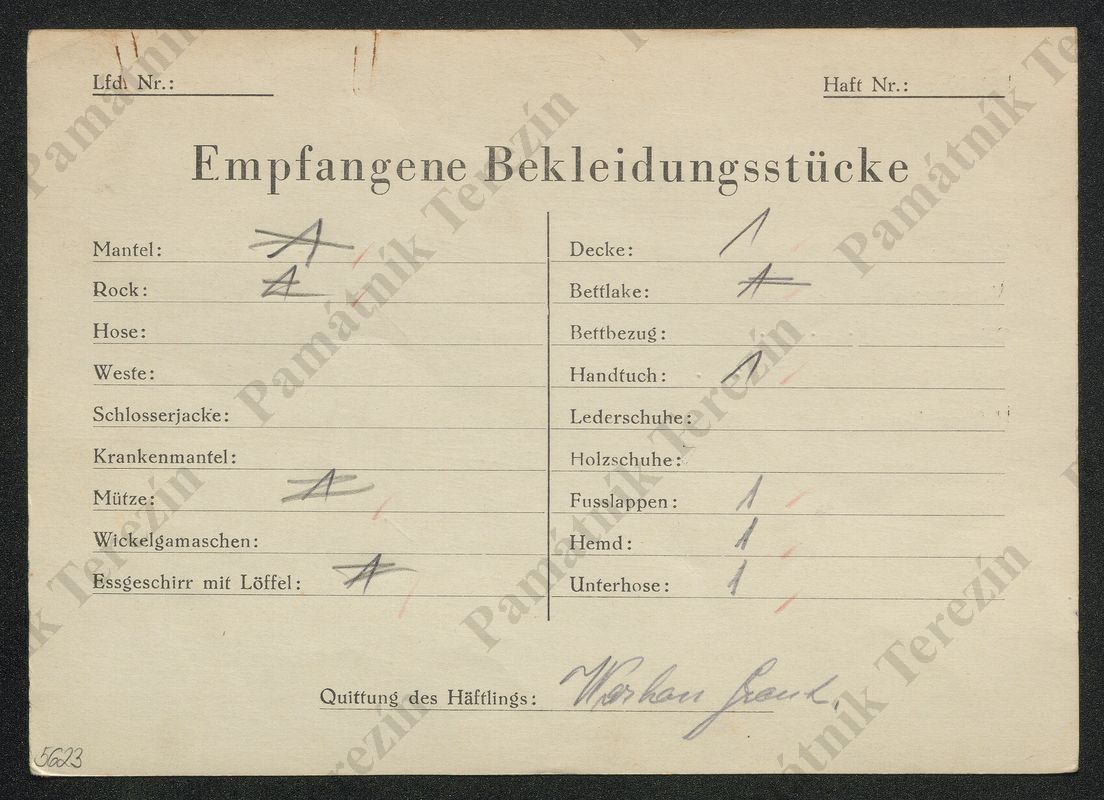 Lfd. Nr.:
Haft Nr.:
Empfangene Bekleidungsstücke
Mantel: 1
Rock: 1
Hose:
Weste:
Schlosserjacke:
Krankenmantel:
Mütze: 1
Wickelgamaschen:
Essgeschirr mit Löffel: 1
Decke: 1
Bettlake: 1
Bettbezug:
Handtuch: 1
Lederschuhe:
Holzschuhe:
Fusslappen: 1
Hemd: 1
Unterhose: 1
Quittung des Häftlings:
5623
Památník Terezín